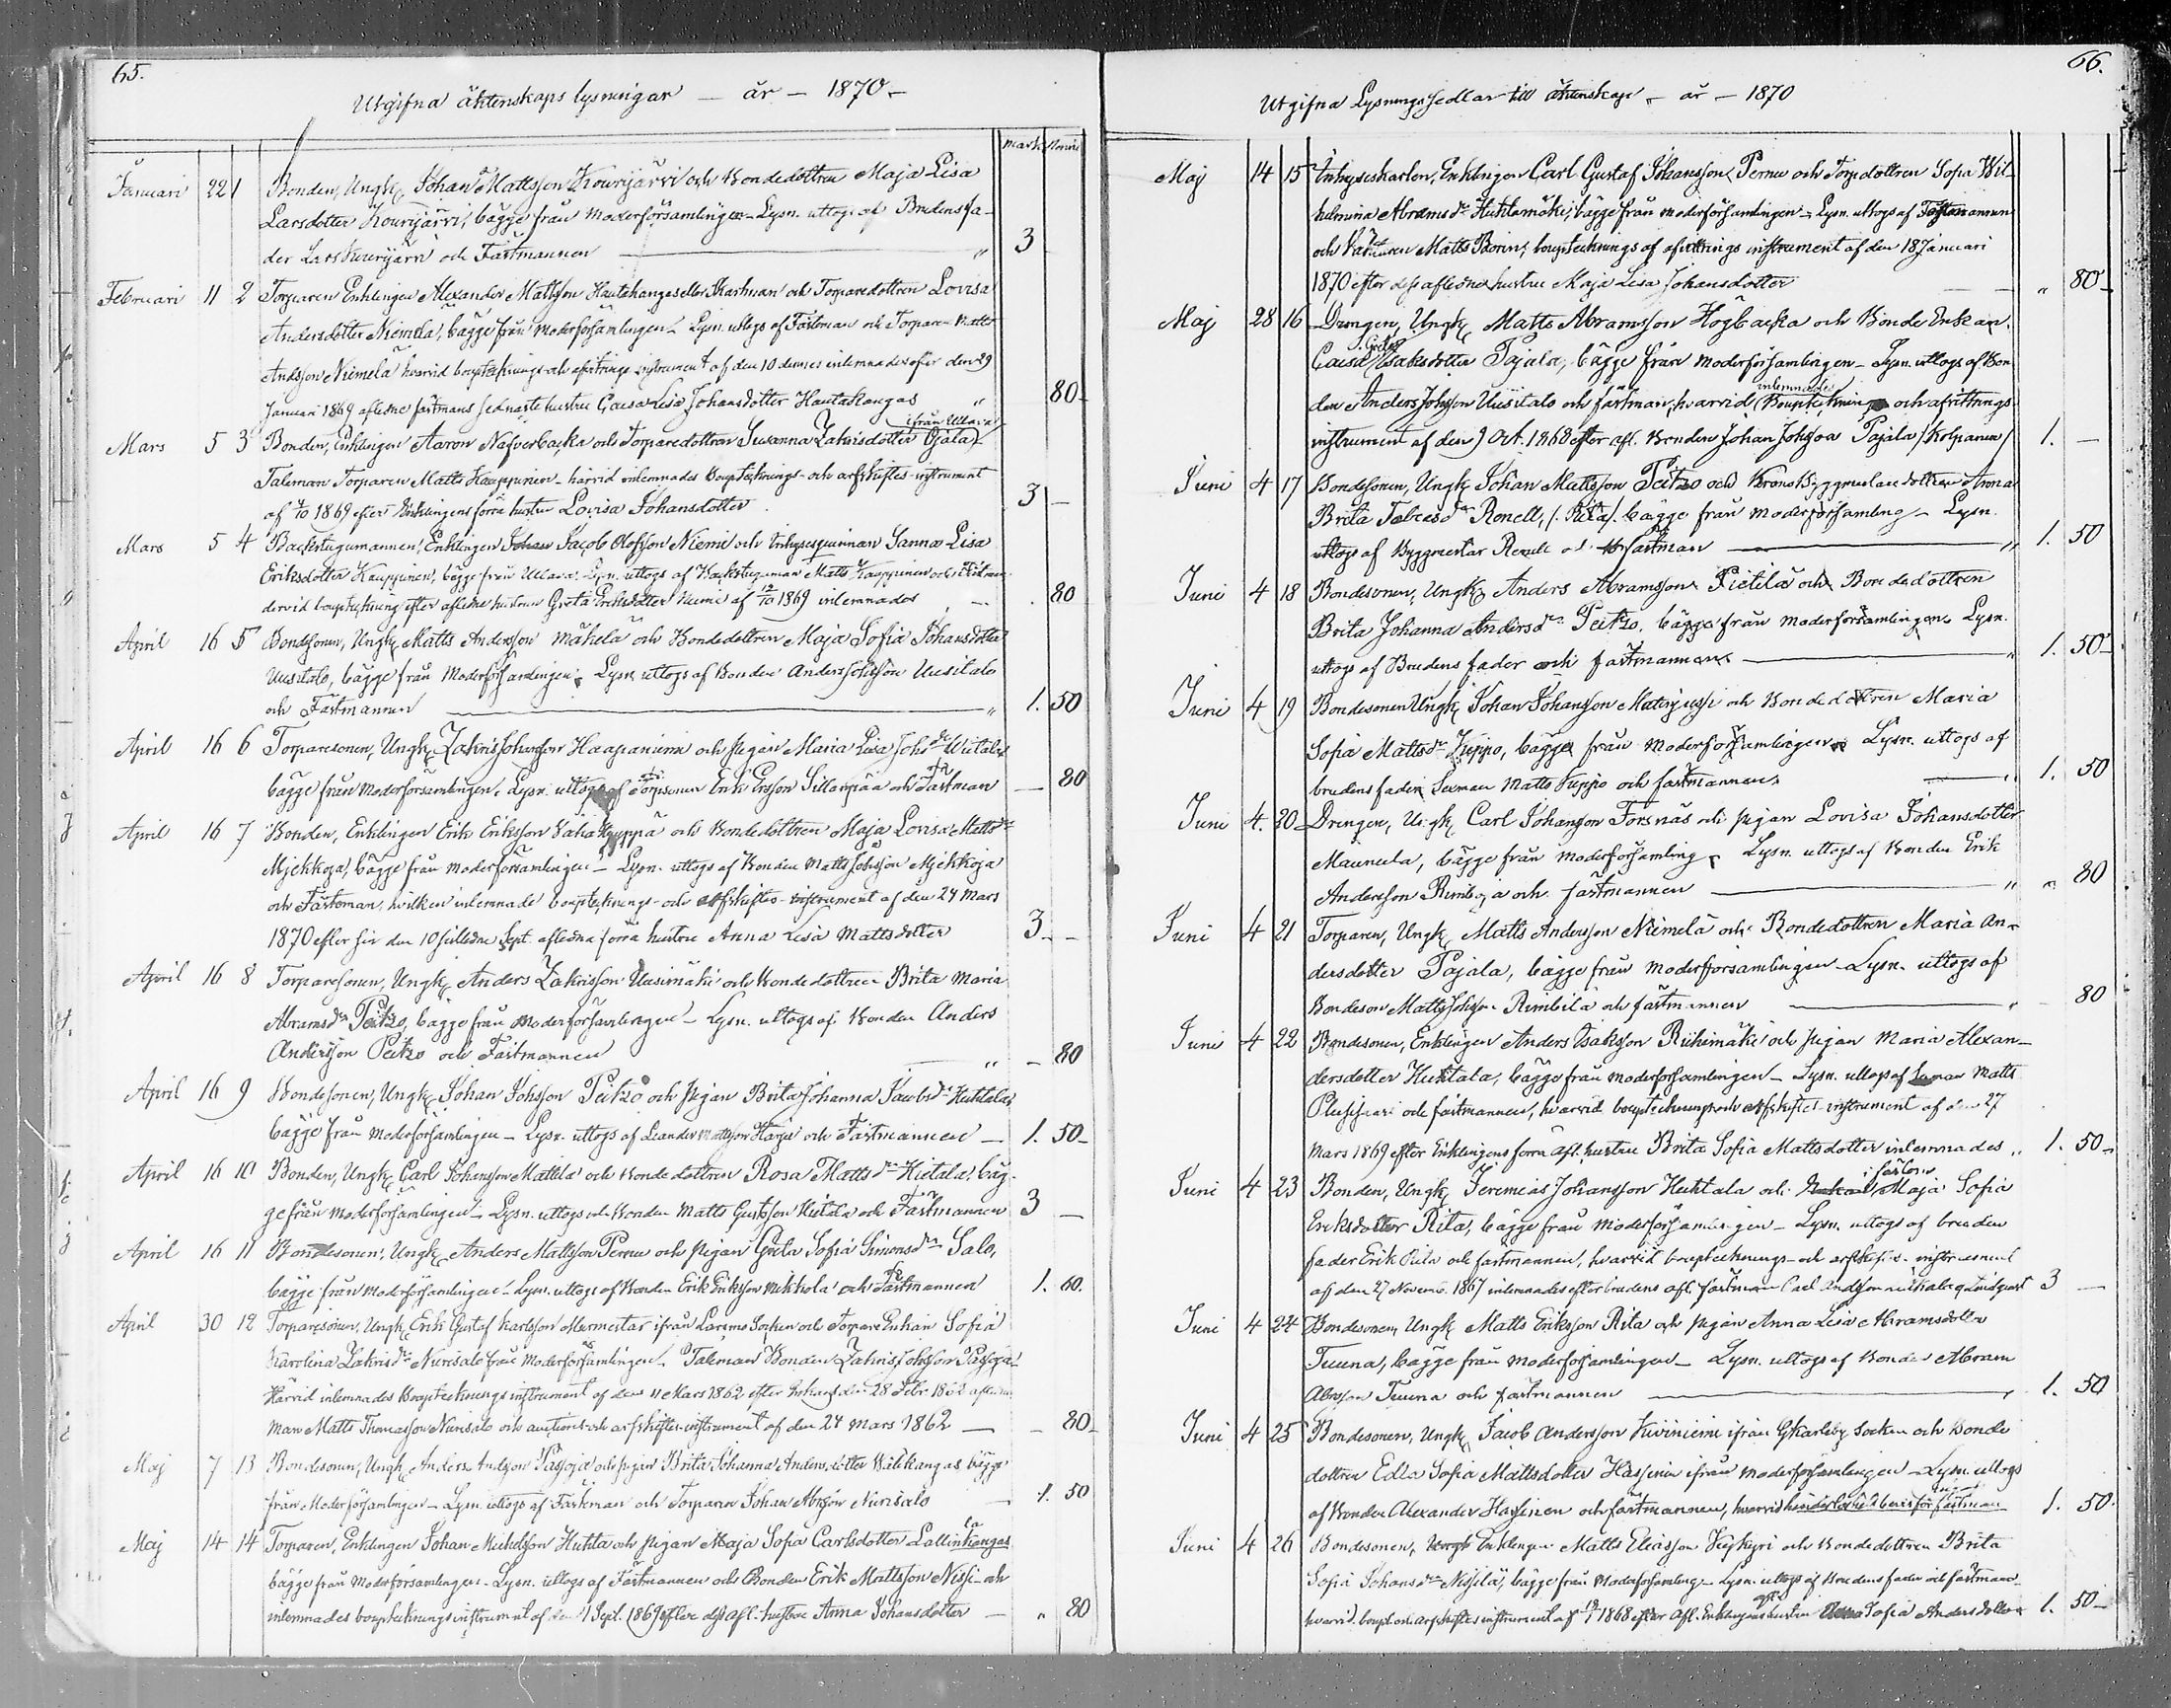 65.
Utgifna äktenskaps lysningar — år — 1870 —
mark
Januari 22 1 Bonden, Ungk. Johan Mattsson Kourijärvi och Bondedottren Maja Lisa
Larsdotter Kourijärvi, bägge från moderförsamlingen - Lysn. uttogs af Brudens fa-
der Lars Kourijärvi och Fästmannen " 3
Februari 11 2 Torparen Enklingen Alexander Mattsson Hautakangas eller Kartman och Torparedottren Lovisa
Andersdotter Niemelä, bägge från moderförsamlingen - Lysn. uttogs af Fästman och Torparen Matts
Andsson Niemelä hvarvid bouptecknings och afvittrings instrument af den 10 dennes inlemnades efter den 29
Januari 1869 aflidne fästmans sednaste hustru Caisa Lisa Johansdotter Hautakangas " 80
ifrån Ullava
Mars 5 3 Bonden, Enklingen Aaron Nafverbacka och Torparedottren Susanna Zakrisdotter Ojala
Taleman Torparen Matts Kauppinen - härvid inlemnades Bouptecknings- och arfskiftes-instrument
af 1869 efter Enklingens förra hustru Lovisa Johansdotter 3 —
Mars 5 4 Backstugumannen, Enklingen Jacob Olofsson Niemi och Inhysesqvinnan Sanna Lisa
Eriksdotter Kauppinen, bägge från Ullava. Lysn. uttogs af Backstuguman Matts Kauppinen och
dervid bouptekning efter aflidne hustrun Greta Eriksdotter Niemi af 1869 inlemnades 80
April 16 5 Bondesonen, Ungk. Matts Andersson Mäkelä och Bondedottren Maja Sofia Johansdotter
Uusitalo, bägge från Moderförsamlingen. Lysn. uttogs af Bonden Anders Johsson Uusitalo
och Fästmannen " 1. 50
April 16 6 Torparesonen, Ungk. Zakris Johansson Haapaniemi och pigan Maria Lisa Johsdr
bägge från moderförsamlingen. Lysn. uttogs af Torpsonen Erik Ersson Sillanpää och Fästman — 80
April 16 7 Bonden, Enklingen Erik Eriksson och Bondedottren Maja Lovisa Mattsdr
Myckkoja, bägge från moderförsamlingen — Lysn. uttogs af Bonden Matts Johsson Myckkoja
och Fästman, hvilken inlemnade bouptecknings- och arfskiftes-instrument af den 24 Mars
1870 efter sin den 10 sistledne Sept. aflidna förra hustru Anna Lisa Mattsdotter 3. —
April 16 8 Torparesonen, Ungk. Anders Zakrisson Uusimäki och Bondedottren Brita Maria
Abramsdr Peitzo, bägge från moderförsamlingen — Lysn. uttogs af Bonden Anders
Andersson Peitzo och Fästmannen " — 80
April 16 9 Bondesonen, Ungk. Johan Johsson Peitzo och pigan Brita Johanna Jacobsdr Huhtala,
bägge från moderförsamlingen — Lysn. uttogs af Leander Mattsson Harju och Fästmannen — 1. 50
April 16 10 Bonden, Ungk. Carl Johansson Mattila och Bondedottren Rosa Mattsdr Hietala, bäg-
ge från moderförsamlingen — Lysn. uttogs och Bonden Matts Gustafsson Hietala och Fästmannen 3 —
April 16 11 Bondesonen, Ungk. Anders Mattsson Pernu och pigan Greta Sofia Simonsdr Salo,
bägge från moderförsamlingen — Lysn. uttogs af Bonden Erik Eriksson Mikkola och Fästmannen 1. 60.
April 30 12 Torparesonen, Ungk. Erik Gustaf Karlsson ifrån Larsmo Socken och Torpare Enkan Sofia
Karolina Zakrisdr Nurisalo från moderförsamlingen. Taleman Bonden Zakris Johsson Passoja
Härvid inlemnades Bouptecknings instrument af den 11 Mars 1862 efter den 28 Febr 1862 aflidne
man Matts Thomasson Nurisalo och auctions och arfskiftes-instrument af den 24 Mars 1862 — 80
Maj 7 13 Bondesonen, Ungk. Anders Andsson Passoja och pigan Brita Johanna Andersdotter Välikangas bägge
från Moderförsamlingen — Lysn. uttogs af Fästman och Torparen Johan Abrsson Nurisalo 1. 50
Maj 14 14 Torparen, Enklingen Johan Michelsson Huhta och pigan Maja Sofia Carlsdotter Lallinkangas
bägge från Moderförsamlingen. Lysn. uttogs af Fästmannen och Bonden Erik Mattsson Nissi och
inlemnades bouptecknings instrument af den 1 Sept. 1869 efter dess afl. hustru Anna Johansdotter — " 80
66.
Utgifna Lysningssedlar till äktenskap — år — 1870
Maj 14 15 Inhyseskarlen, Enklingen Carl Gustaf Johansson Pernu och Torpdottren Sofia Wil-
helmina Abramsdr Huhtamäki, bägge från moderförsamlingen — Lysn. uttogs af Fästmannen
och Matts Borin, bouptecknings af afvittrings instrument af den 18 Januari
1870 efter dess aflidna hustru Maja Lisa Johansdotter " 80
Maj 28 16 Drengen, Ungk. Matts Abramsson Högbacka och Bonde Enkan
Caisa Greta Isaksdotter Pajala, bägge från moderförsamlingen — Lysn. uttogs af Bon-
den Anders Johsson Uusitalo och fästman, hvarvid inlemnades Boupteckning och afvittrings
instrument af den 9 Oct. 1868 efter afl. Bonden Johan Johsson Pajala /Kolpanen/ 1. —
Juni 4 17 Bondesonen, Ungk. Johan Mattsson Peitzo och Kronobyggmästaredottren Anna
Brita Tobiasdr Ronell, /: Rita/. bägge från moderförsamling — Lysn.
uttogs af Byggmästar Ronell och fästman " 1. 50
Juni 4 18 Bondesonen, Ungk. Anders Abramsson Pietilä och Bondedottren
Brita Johanna Andersdr Peitzo, bägge från moderförsamlingen. Lysn.
uttogs af Brudens fader och fästmannen " 1. 50
Juni 4 19 Bondesonen Ungk. Johan Johansson Matinjussi och Bondedottren Maria
Sofia Mattsdr Kuppo, bägge från moderförsamlingen Lysn. uttogs af
brudens fader Sexman Matts Kuppo och fästmannen " 1. 50
Juni 4. 20 Drengen, Ungk. Carl Johansson Forsnäs och pigan Lovisa Johansdotter
Maunula, bägge från moderförsamling. Lysn. uttogs af Bonden Erik
Andersson Rimboja och fästmannen " " 80
Juni 4 21 Torparen, Ungk. Matts Andersson Niemelä och Bondedottren Maria An-
dersdotter Pajala, bägge från moderförsamlingen — Lysn. uttogs af
Bondeson Matts Johsson Rimbilä och fästmannen " 80
Juni 4 22 Bondesonen, Enklingen Anders Isaksson Riihimäki och pigan Maria Alexan-
dersdotter Huhtala, bägge från moderförsamlingen — Lysn. uttogs af Matts
och fästmannen, hvarvid bouptecknings och arfskiftes instrument af den 27
Mars 1869 efter Enklingens förra afl. hustru Brita Sofia Mattsdotter inlemnades " 1. 50
Juni 4 23 Bonden, Ungk. Jeremias Johansson Huhtala och Maja Sofia
Eriksdotter Rita, bägge från moderförsamlingen — Lysn. uttogs af bruden
fader Erik Rita och fästmannen, hvarvid bouptecknings- och arfskiftes-instrument
af den 27 Novemb. 1867 inlemnades efter brudens afl. fästman Carl Andsson Lindqvist 3 —
Juni 4 24 Bondesonen, Ungk. Matts Eriksson Rita och pigan Anna Lisa Abramsdotter
Tuuna, bägge från moderförsamlingen — Lysn. uttogs af Bonden Abram
Abrsson Tuuna och fästmannen 1. 50
Juni 4 25 Bondesonen, Ungk. Jacob Andersson Kiviniemi ifrån Gkarleby Socken och Bonde
dottren Edla Sofia Mattsdotter Hassinen ifrån moderförsamlingen — Lysn. uttogs
af Bonden Alexander Hassinen och fästmannen, hvarvid hinderlöshets bevis för fästman 1. 50
Juni 4 26 Bondesonen, Enklingen Matts Eliasson och Bondedottren Brita
Sofia Johansdr Nissilä, bägge från moderförsamling — Lysn. uttogs af Brudens fader och fästman
hvarvid boupt. och arfskiftes instrument af 1868 efter afl. Enklingens hustru Sofia Andersdotter 1. 50